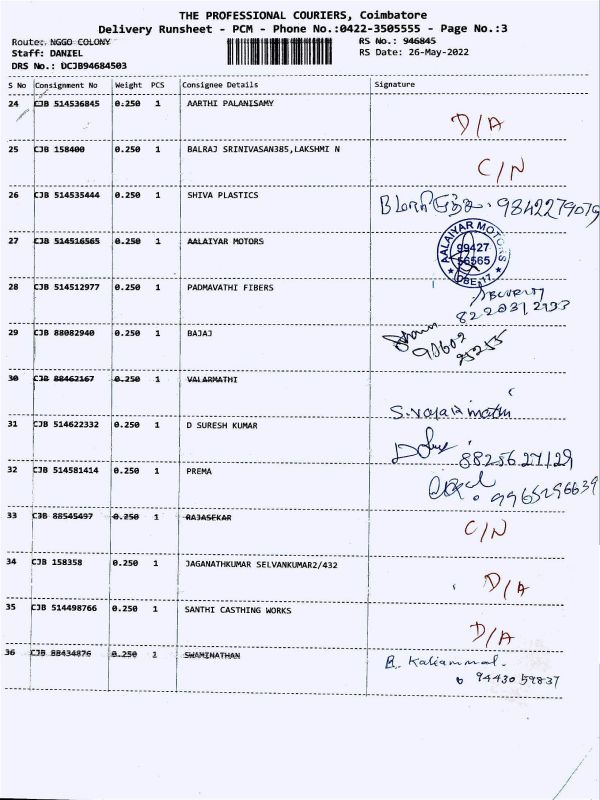 THE PROFESSIONAL COURIERS, Coimbatore
Delivery Runsheet - PCM - Phone No.:0422-3505555 - Page No.:3
Route: NGGO COLONY RS No.: 946845
Staff: DANIEL RS Date: 26-May-2022
DRS No.: DCJB94684503
S No Consignment No Weight PCS Consignee Details Signature
24 CJB 514536845 0.250 1 AARTHI PALANISAMY
D/A
25 CJB 158400 0.250 1 BALRAJ SRINIVASAN385,LAKSHMI N
C/N
26 CJB 514535444 0.250 1 SHIVA PLASTICS
9842279079
27 CJB 514516565 0.250 1 AALAIYAR MOTORS
AALAIYAR MOTORS
99427
56565
28 CJB 514512977 0.250 1 PADMAVATHI FIBERS
SECURITY
29 CJB 88082940 0.250 1 BAJAJ
90602
95255
30 CJB 88462167 0.250 VALARMATHI
31 CJB 514622332 0.250 1 D SURESH KUMAR
8825627129
32 CJB 514581414 0.250 1 PREMA
9965296639
33 CJB 88545497 0.250 1 RAJASEKAR
C/N
34 CJB 158358 0.250 1 JAGANATHKUMAR SELVANKUMAR2/432
D/A
35 CJB 514498766 0.250 1 SANTHI CASTHING WORKS
D/A
36 CJB 88434876 0.250 1 SWAMINATHAN
Kaliammal.
94430 59837